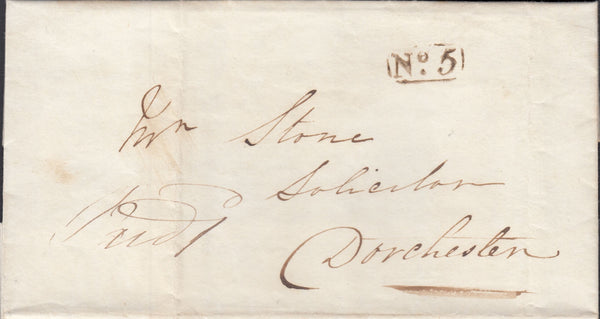 No. 5
Mr Stone
Solicitor
Paid
Dorchester